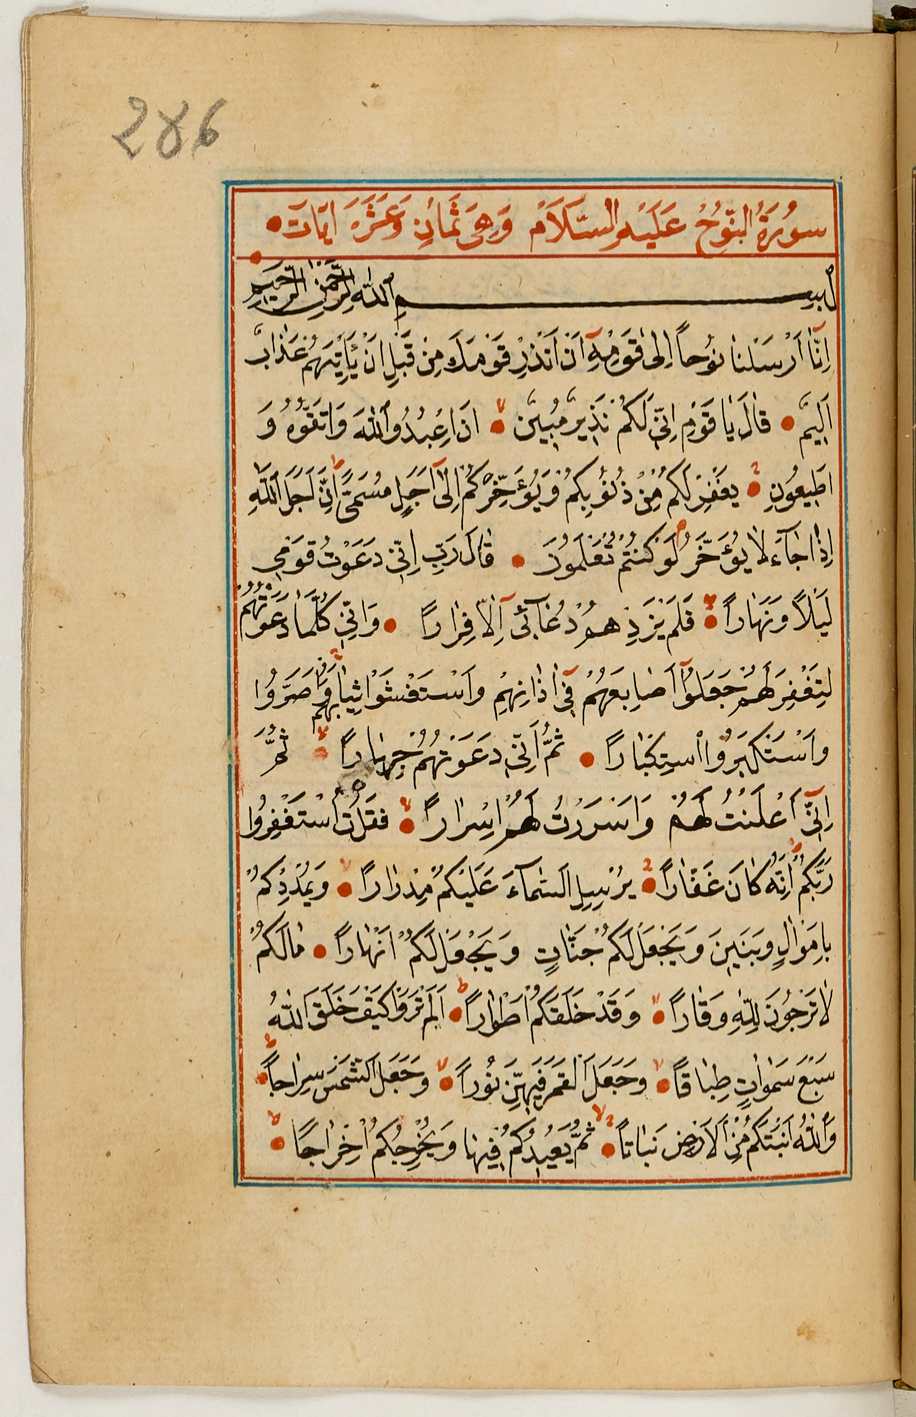 286
سُورَةُ النُّوحُ عَلَيْهِ السَّلَامُ وَهِىَ ثَمَانِ وَعَشَرَةَ اٰيَاتَ
بِسْمِ اللّٰهِ الرَّحْمٰنِ الرَّحِيمِ
اِنَّا اَرْسَلْنَا نُوْحاً اِلٰى قَوْمِهِ اَنْ اَنْذِرْ قَوْمَكَ مِنْ قَبْلِ اَنْ يَأْتِيَهُمْ عَذَابٌ
اَلِيمٌ قَالَ يَا قَوْمِ اِنِّى لَكُمْ نَذِيرٌ مُبِينٌ اَنِ اعْبُدُوا اللّٰهَ وَاتَّقُوهُ وَ
اَطِيعُونِ يَغْفِرْ لَكُمْ مِنْ ذُنُوبِكُمْ وَيُؤَخِّرْكُمْ اِلٰى اَجَلٍ مُسَمًّى اِنَّ اَجَلَ اللّٰهِ
اِذَا جَآءَ لَا يُؤَخَّرُ لَوْ كُنْتُمْ تَعْلَمُونَ قَالَ رَبِّ اِنِّى دَعَوْتُ قَوْمِى
لَيْلاً وَنَهَاراً فَلَمْ يَزِدْهُمْ دُعَآئِى اِلَّا فِرَاراً وَاِنِّى كُلَّمَا دَعَوْتُهُمْ
لِتَغْفِرَ لَهُمْ جَعَلُوا اَصَابِعَهُمْ فِى اٰذَانِهِمْ وَاسْتَغْشَوْا ثِيَابَهُمْ وَاَصَرُّوا
وَاسْتَكْبَرُوا اسْتِكْبَاراً ثُمَّ اِنِّى دَعَوْتُهُمْ جِهَاراً ثُمَّ
اِنِّى اَعْلَنْتُ لَهُمْ وَاَسْرَرْتُ لَهُمْ اِسْرَاراً فَقُلْتُ اسْتَغْفِرُوا
رَبَّكُمْ اِنَّهُ كَانَ غَفَّاراً يُرْسِلِ السَّمَآءَ عَلَيْكُمْ مِدْرَاراً وَيُمْدِدْكُمْ
بِاَمْوَالٍ وَبَنِينَ وَيَجْعَلْ لَكُمْ جَنَّاتٍ وَيَجْعَلْ لَكُمْ اَنْهَاراً مَالَكُمْ
لَا تَرْجُونَ لِلّٰهِ وَقَاراً وَقَدْ خَلَقَكُمْ اَطْوَاراً اَلَمْ تَرَوْا كَيْفَ خَلَقَ اللّٰهُ
سَبْعَ سَمٰوَاتٍ طِبَاقاً وَجَعَلَ الْقَمَرَ فِيهِنَّ نُوراً وَجَعَلَ الشَّمْسَ سِرَاجاً
وَاللّٰهُ اَنْبَتَكُمْ مِنَ الْاَرْضِ نَبَاتاً ثُمَّ يُعِيدُكُمْ فِيهَا وَيُخْرِجُكُمْ اِخْرَاجاً